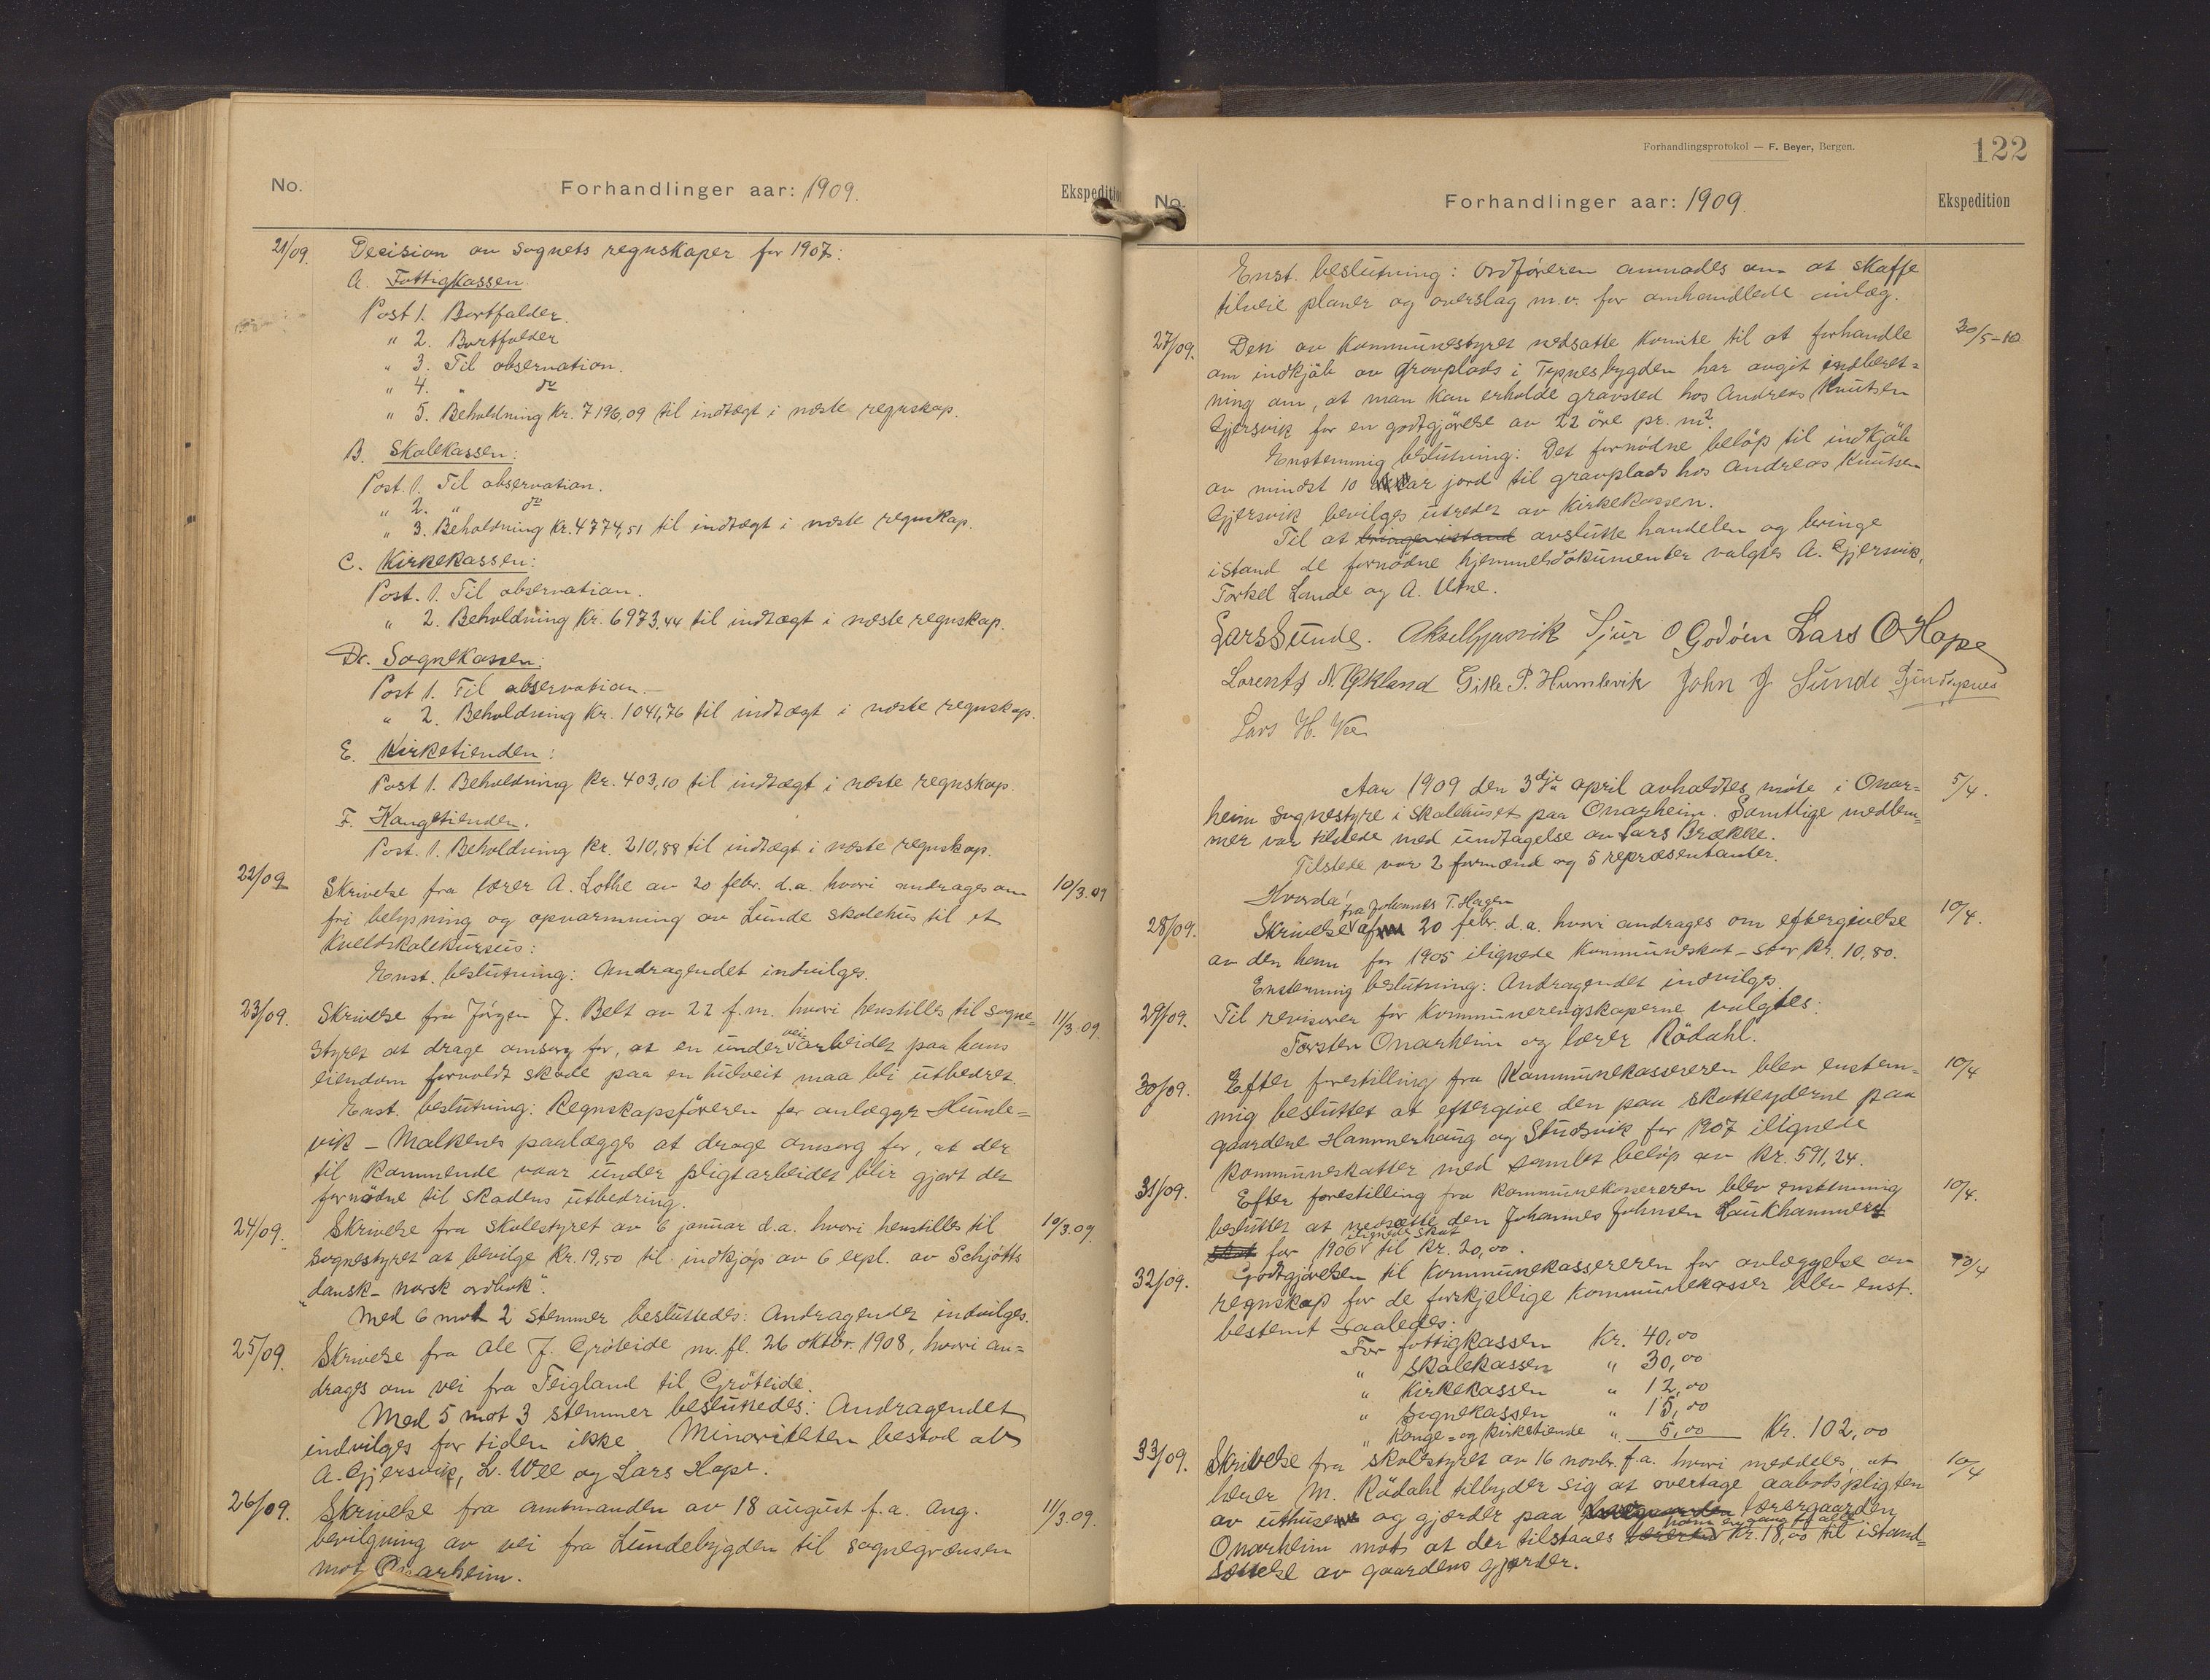 No. Forhandlinger aar: 1909. Ekspeditio
21/09. Decision av sognets regnskaper for 1907:
A. Fattigkassen.
Post 1. Bortfalder.
" 2. Bortfalder
" 3. Til observation.
" 4. " do
" 5. Beholdning Kr. 7196,09 til indtægt i næste regnskap.
B. Skolekassen:
Post. 1. Til observation.
" 2. " do
" 3. Beholdning Kr. 4774,51 til indtægt i næste regnskap.
C. Kirkekassen:
Post. 1. Til observation.
" 2. Beholdning Kr. 6973,44 til indtægt i næste regnskap.
D. Sognekassen:
Post 1. Til observation.
" 2. Beholdning Kr. 1041,76 til indtægt i næste regnskap.
E. Kirketienden:
Post 1. Beholdning Kr. 403,10 til indtægt i næste regnskap.
F. Kongetienden.
Post. 1. Beholdning Kr. 210,88 til indtægt i næste regnskap.
22/09 Skrivelse fra lærer A. Lothe av 20 febr. d.a. hvori andrages om 10/3.09
fri belysning og opvarmning av Lunde skolehus til et
Kveldskolekursus:
Enst. beslutning: Andragendet indvilges.
23/09. Skrivelse fra Jörgen J. Belt av 22 f.m. hvori henstilles til sogne= 11/3.09.
styret at drage omsorg for, at en under vei arbeidet paa hans
eiendom forvoldt skade paa en hulveit maa bli utbedret.
Enst. beslutning: Regnskapsföreren for anlægget Humle=
vik - Malkenes paalægges at drage omsorg for, at der
til kommende vaar under pligtarbeidet blir gjort det
fornödne til skadens utbedring.
24/09. Skrivelse fra skolestyret av 6 januar d.a. hvori henstilles til 10/3.09.
sognestyret at bevilge Kr. 19,50 til indkjøp av 6 expl. av Schjötts
"dansk-norsk ordbok".
Med 6 mot 2 stemmer besluttedes: Andragendet indvilges.
25/09. Skrivelse fra Ole J. Gröteide m. fl. 26 oktbr. 1908, hvori an=
drages om vei fra Teigland til Gröteide.
Med 5 mot 3 stemmer besluttedes: Andragendet
indvilges for tiden ikke. Minoriteten bestod av
A. Gjersvik, L. Wee og Lars Hope.
26/09. Skrivelse fra amtmanden av 18 august f.a. ang. 11/3.09.
bevilgning av vei fra Lundebygden til sognegrænsen
mot Onarheim.
Forhandlingsprotokol — F. Beyer, Bergen. 122
No. Forhandlinger aar: 1909. Ekspedition
Enst. beslutning: Ordföreren anmodes om at skaffe
tilveie planer og overslag m.v. for omhandlede anlæg.
27/09. Den av Kommunestyret nedsatte Komite til at forhandle 30/5-10
om indkjöb av gravplads i Tepnesbygden har avgit indberet=
ning om, at man kan erholde gravsted hos Andreas Knutsen
Gjersvik for en godtgjörelse av 22 öre pr. m2.
Enstemmig beslutning: Det fornödne belöp til indkjöb
av mindst 10 ar jord til gravplads hos Andreas Knutsen
Gjersvik bevilges utredet av Kirkekassen.
Til at bringe istand avslutte handelen og bringe
istand de fornödne hjemmelsdokumenter valgtes A. Gjersvik,
Torkel Lande og A. Utne.
Lars Sunde. Aksel Gjersvik Sjur O Godöen Lars O Hope
Lorents N. Økland Gitle P. Humlevik John J Sunde
Lars H. Vee
Aar 1909 den 3dje april avholdtes möte i Onar= 5/4.
heim sognestyre i skolehuset paa Onarheim. Samtlige medlem=
mer var tilstede med undtagelse av Lars Brække.
Tilstede var 2 formænd og 5 repræsentanter.
Hvorda:
fra Johannes T. Hagen
28/09. Skrivelse af 20 febr. d.a. hvori andrages om eftergivelse 10/4.
av den ham for 1905 ilignede Kommuneskat - stor Kr. 10,80.
Enstemmig beslutning: Andragendet indvilges.
29/09. Til revisorer for Kommuneregnskaperne valgtes:
Torsten Onarheim og lærer Rödahl.
30/09. Efter forestilling fra Kommunekassereren blev enstem= 10/4
mig besluttet at eftergive den paa skatteyderne paa
gaardene Hammerhaug og Studsvik for 1907 ilignede
Kommuneskatter med samlet beløp av Kr. 591,24.
31/09. Efter forestilling fra kommunekassereren blev enstemmig 10/4.
besluttet at nedsætte den Johannes Johnsen Laukhammer
ilignede skat
skat for 1906 til Kr. 20,00.
32/09. Godtgjörelsen til Kommunekassereren for avlæggelse av 10/4
regnskap for de forskjellige Kommunekasser blev enst.
bestemt saaledes:
For fattigkassen Kr. 40,00
" Skolekassen " 30,00
" Kirkekassen " 12,00
" Sognekassen " 15,00
" Konge- og Kirketiende " 5,00 Kr. 102,00
33/09. Skrivelse fra skolestyret av 16 novbr. f.a. hvori meddeles, at 10/4
lærer M. Rödahl tilbyder sig at overtage aabotspligten
av uthusene og gjærder paa lærergaarden
ham en gang for alle
Onarheim mot at der tilstaaes Kr. 18,00 til istand=
sættelse av gaardens gjærder.